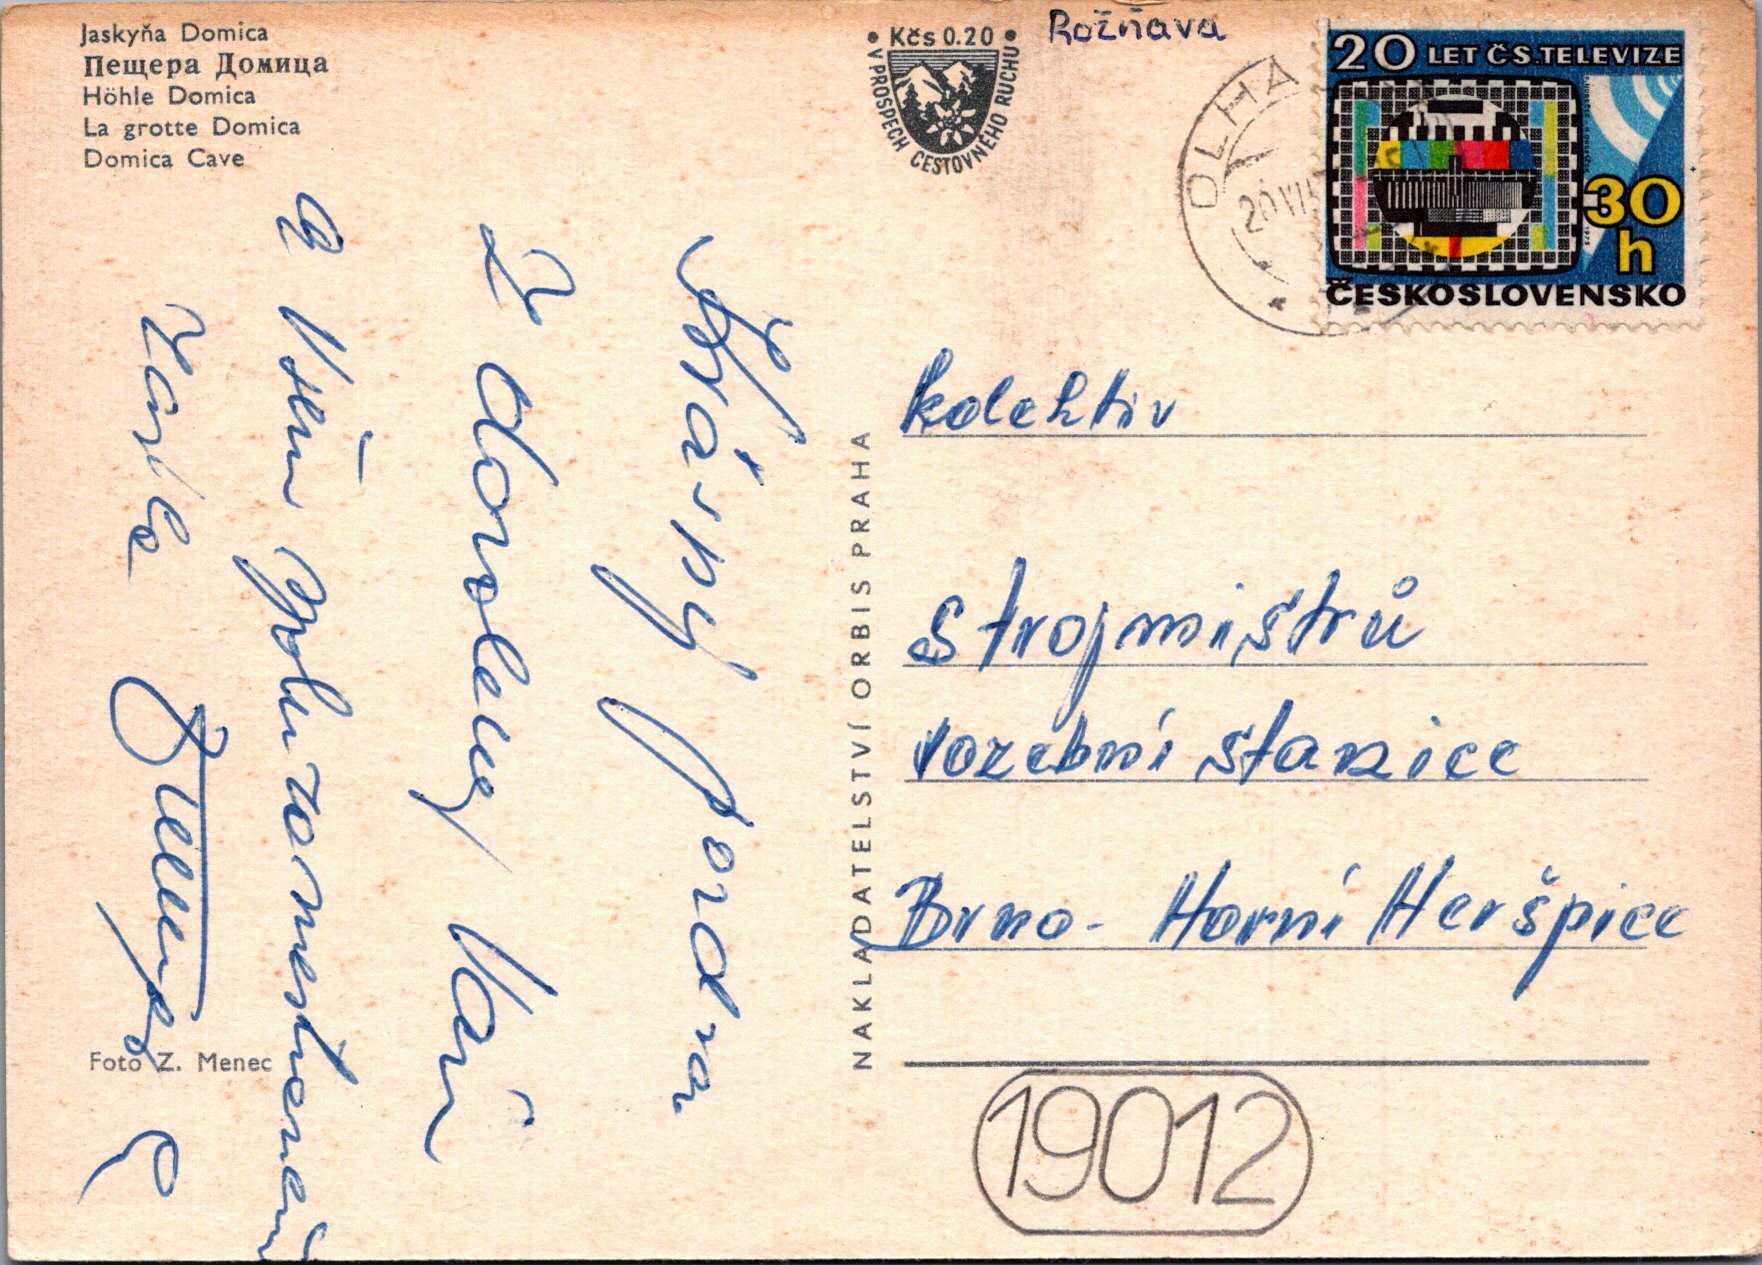 Jaskyňa Domica
Пещера Домица
Höhle Domica
La grotte Domica
Domica Cave
• Kčs 0.20 •
V PROSPECH CESTOVNÉHO RUCHU
Rožňava
DLHÁ
20.VI
20 LET ČS. TELEVIZE
30
h
ČESKOSLOVENSKO
Krásný pozdrav
z dovolený Vám
a Všem spoluzaměstnancům
NAKLADATELSTVÍ ORBIS PRAHA
kolektiv
strojmistrů
vozební stanice
Brno - Horní Heršpice
Foto Z. Menec
19012